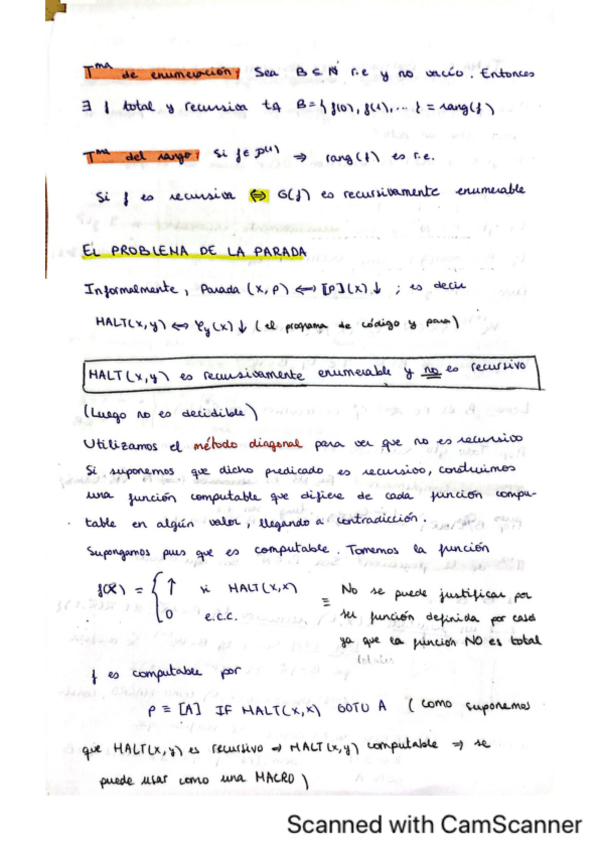 Tma de enumeración: Sea B ⊆ ℕ r.e y no vacío. Entonces
∃ f total y recursiva tq B = { f(0), f(1), ... } = rang(f)
Tma del rango: Si f ∈ P(1) ⇒ rang(f) es r.e.
Si f es recursiva ⇔ G(f) es recursivamente enumerable
EL PROBLEMA DE LA PARADA
Informalmente, Parada (x, p) ⟺ [P](x)↓ ; es decir
HALT(x,y) ⟺ φy(x)↓ (el programa de código y para)
HALT(x,y) es recursivamente enumerable y no es recursivo
(Luego no es decidible)
Utilizamos el método diagonal para ver que no es recursivo
Si suponemos que dicho predicado es recursivo, construimos
una función computable que difiere de cada función compu-
table en algún valor, llegando a contradicción.
Supongamos pues que es computable. Tomemos la función
f(x) = { ↑ si HALT(x,x) ≡ No se puede justificar por
0 e.c.c. ser función definida por caso
ya que la función NO es total
totales
f es computable por
P ≡ [A] IF HALT(x,x) GOTO A (como suponemos
que HALT(x,y) es recursivo ⇒ HALT(x,y) computable ⇒ se
puede usar como una MACRO)
Scanned with CamScanner